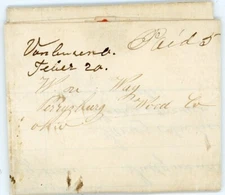 Paid 5
Vanlueend.
Feber 20.
Wm Way
Perrysburg Wood Co
ohio